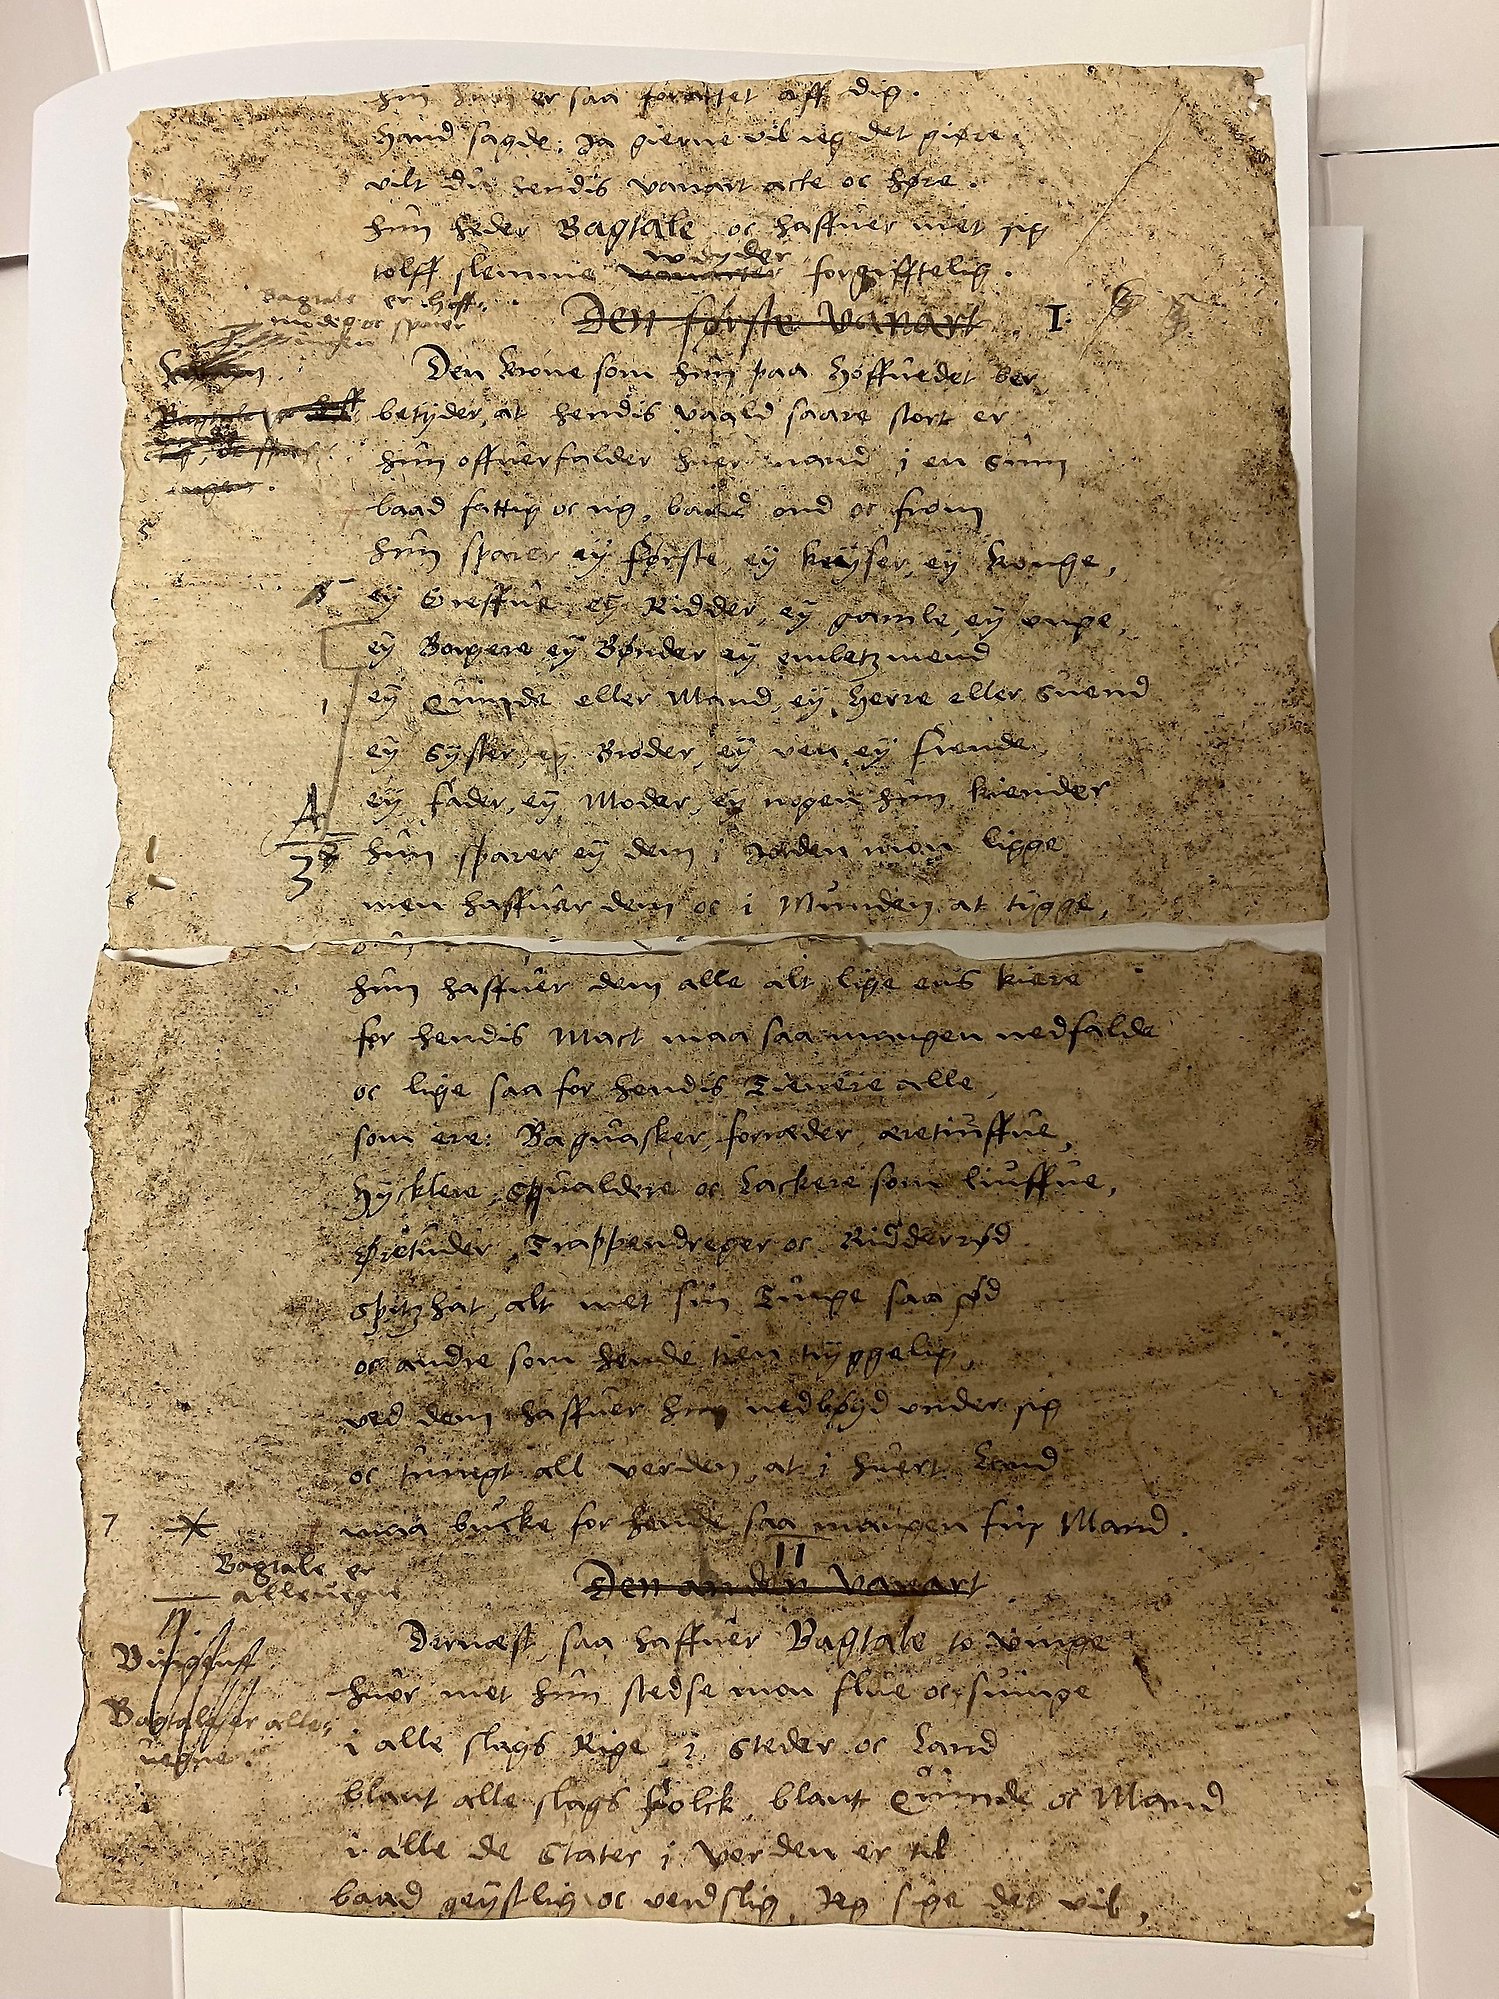 hun er saa foractet aff dig.
Hand sagde, Ja gierne vil ieg det giøre.
vilt du hendis vanart acte oc høre.
hun heder Bagtale oc haffuer met sig
wnyder
tolff slemme vanarter forgifftelig.
Bagtale er hoff-
modig oc sparer
ingen
Den første vanart. I.
Den krone som hun paa Hoffuedet ber
betyder, at hendis vaald saare stort er
Bagtale
hun offuerfalder huer mand i en sum
baad fattig oc rig, baade ond oc from
5
hun sparer ey Første, ey keyser, ey konge,
ey Greffue, ey Ridder, ey gamle, ey unge,
ey Borgere ey Bønder ey embetzmend
ey Quinde eller Mand, ey Herre eller Suend
ey Syster, ey Broder, ey ven, ey fiende,
ey fader, ey Moder, ey nogen hun kiender
A
3
hun sparer ey dem i Jorden mon ligge
men haffuer dem oc i Munden at tygge,
6
hun haffuer dem alle alt lige ens kiere
for hendis Mact maa saa mangen nedfalde
oc lige saa for hendis Tienere alle,
som ere: Baguasker, forræder, æretiuffue,
Hycklere, Squaldere oc Lackere som liuffue,
Øretuder, Trappendreger oc Ridderrød
Spitzhat, alt met sin Tunge saa sød
oc andre som hende tien tryggelig,
ved dem haffuer hun nedbøyd under sig
oc tuingt all verden, at i huert Land
7 maa bucke for hende saa mangen frip Mand.
II
Bagtale er
alleuegne
Den anden Vanart
Dernæst saa haffuer Bagtale to vinge
huor met hun stedse mon flue oc suinge
Bagtale er alle-
uegne.
i alle slags Rige, i Steder oc Land
blant alle slags folck, blant Quinde oc Mand
i alle de Stater i Verden er til
baad geystlig oc verdslig, Jeg sige det vil,